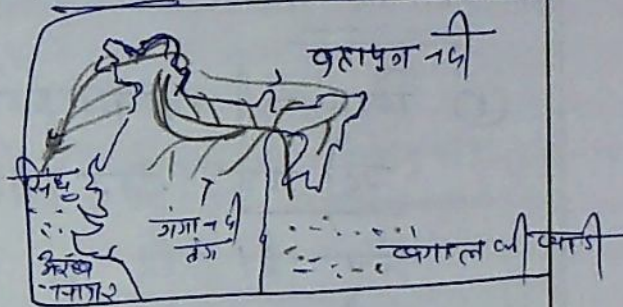 ब्रह्मपुत्र नदी
सिंधु
गंगा नदी
तंग
अरब
सागर
बंगाल की खाड़ी